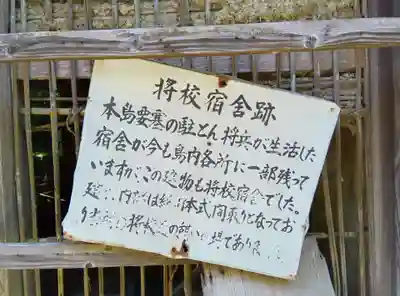 将校宿舎跡
本島要塞の駐とん将兵が生活した
宿舎が今も島内各所に一部残って
いますがこの建物も将校宿舎でした。
建 内 は純日本式間取りとなってお
り 将校 の憩い 場であり